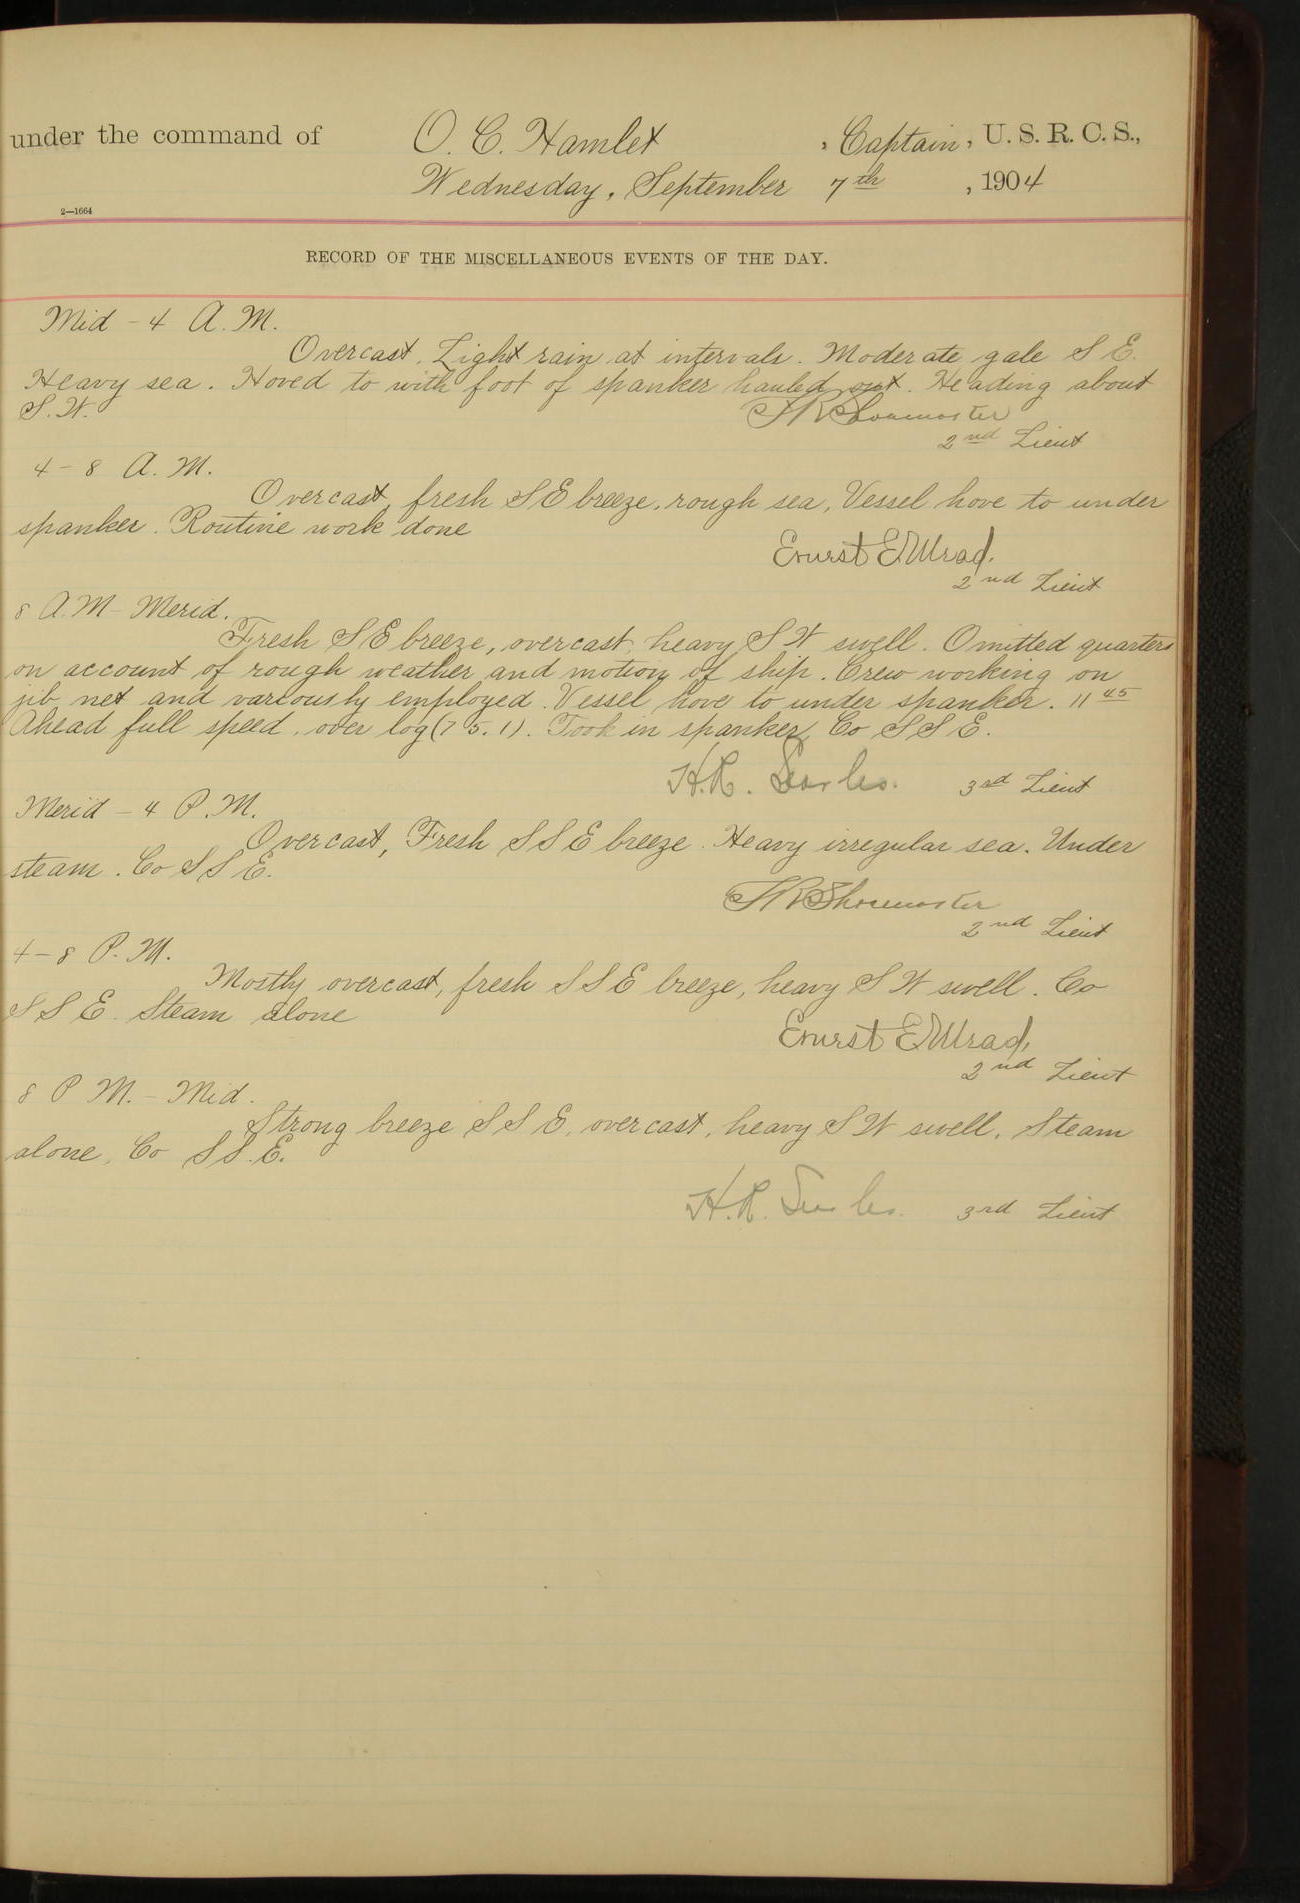 under the command of O. C. Hamlet , Captain , U. S. R. C. S.,
Wednesday, September 7th , 1904
2—1664
RECORD OF THE MISCELLANEOUS EVENTS OF THE DAY.
Mid - 4 A. M.
Overcast. Light rain at intervals. Moderate gale S E.
Heavy sea. Hoved to with foot of spanker hauled out. Heading about
S. W.
2nd Lieut
4 - 8 A. M.
Overcast, fresh S E breeze, rough sea, Vessel hove to under
spanker. Routine work done
2nd Lieut
8 A. M - Merid.
Fresh S E breeze, overcast, heavy S W swell. Omitted quarters
on account of rough weather and motion of ship. Crew working on
jib net and variously employed. Vessel hove to under spanker. 11 45
Ahead full speed, over log (75.1). Took in spanker, Co S S E.
H. R. 3rd Lieut
Merid - 4 P. M.
Overcast, Fresh S S E breeze. Heavy irregular sea. Under
steam. Co S S E.
2nd Lieut
4 - 8 P. M.
Mostly overcast, fresh S S E breeze, heavy S W swell. Co
S S E. Steam alone
2nd Lieut
8 P M. - Mid.
Strong breeze S S E, overcast, heavy S W swell. Steam
alone, Co S S. E.
H. R. 3rd Lieut